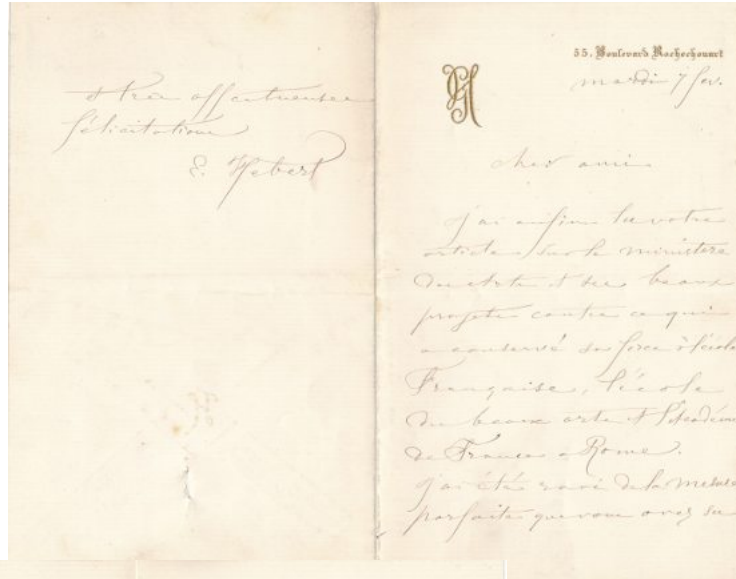 & très affectueuses
félicitations
E. Hebert
55, Boulevard Rochechouart
mardi 7 fev.
cher ami
j'ai enfin lu votre
article sur le ministère
des Arts & ses beaux
projets contre ce qui
a conservé sa force à l'école
Française, l'école
des beaux arts & l'Académie
de France à Rome.
j'ai été ravi de la mesure
parfaite que vous avez su